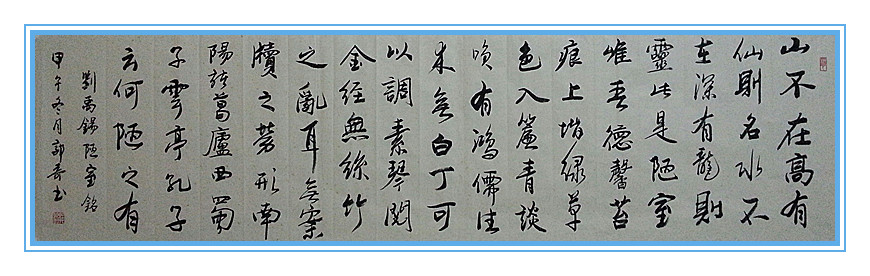 山不在高有
仙則名水不
在深有龍則
靈此是陋室
惟吾德馨苔
痕上堦緑草
色入簾青談
咲有鴻儒往
来無白丁可
以調素琴閱
金經無絲竹
之亂耳無案
牘之勞形南
陽諸葛廬西蜀
子雲亭孔子
云何陋之有
劉禹錫陋室銘
甲午冬月郭